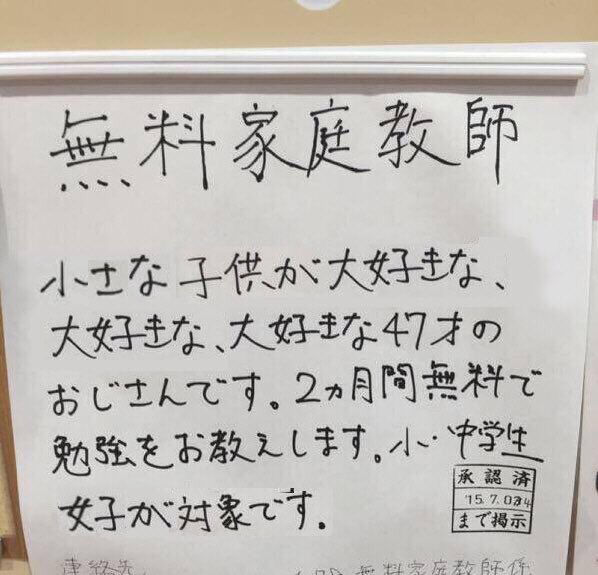 無料家庭教師
小さな子供が大好きな、
大好きな、大好きな47才の
おじさんです。2ヵ月間無料で
勉強をお教えします。小・中学生
女子が対象です。
承認済
まで掲示
連絡先
無料家庭教師係